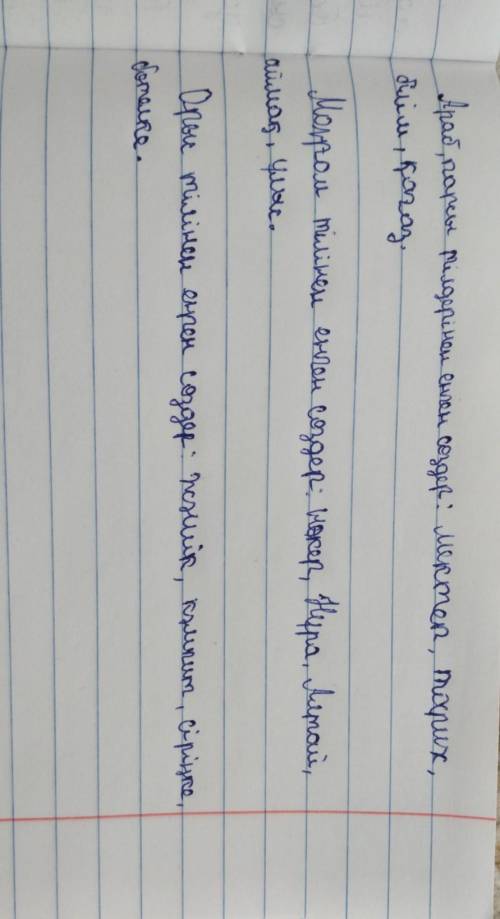 Араб, парсы тілдерінен енген сөздер: мектеп, тарих,
білім, қағаз.
Моңғол тілінен енген сөздер: нөкер, Нура, Алтай,
аймақ, ұлыс.
Орыс тілінен енген сөздер: жәшік, кәмпит, сіріңке,
бөтелке.